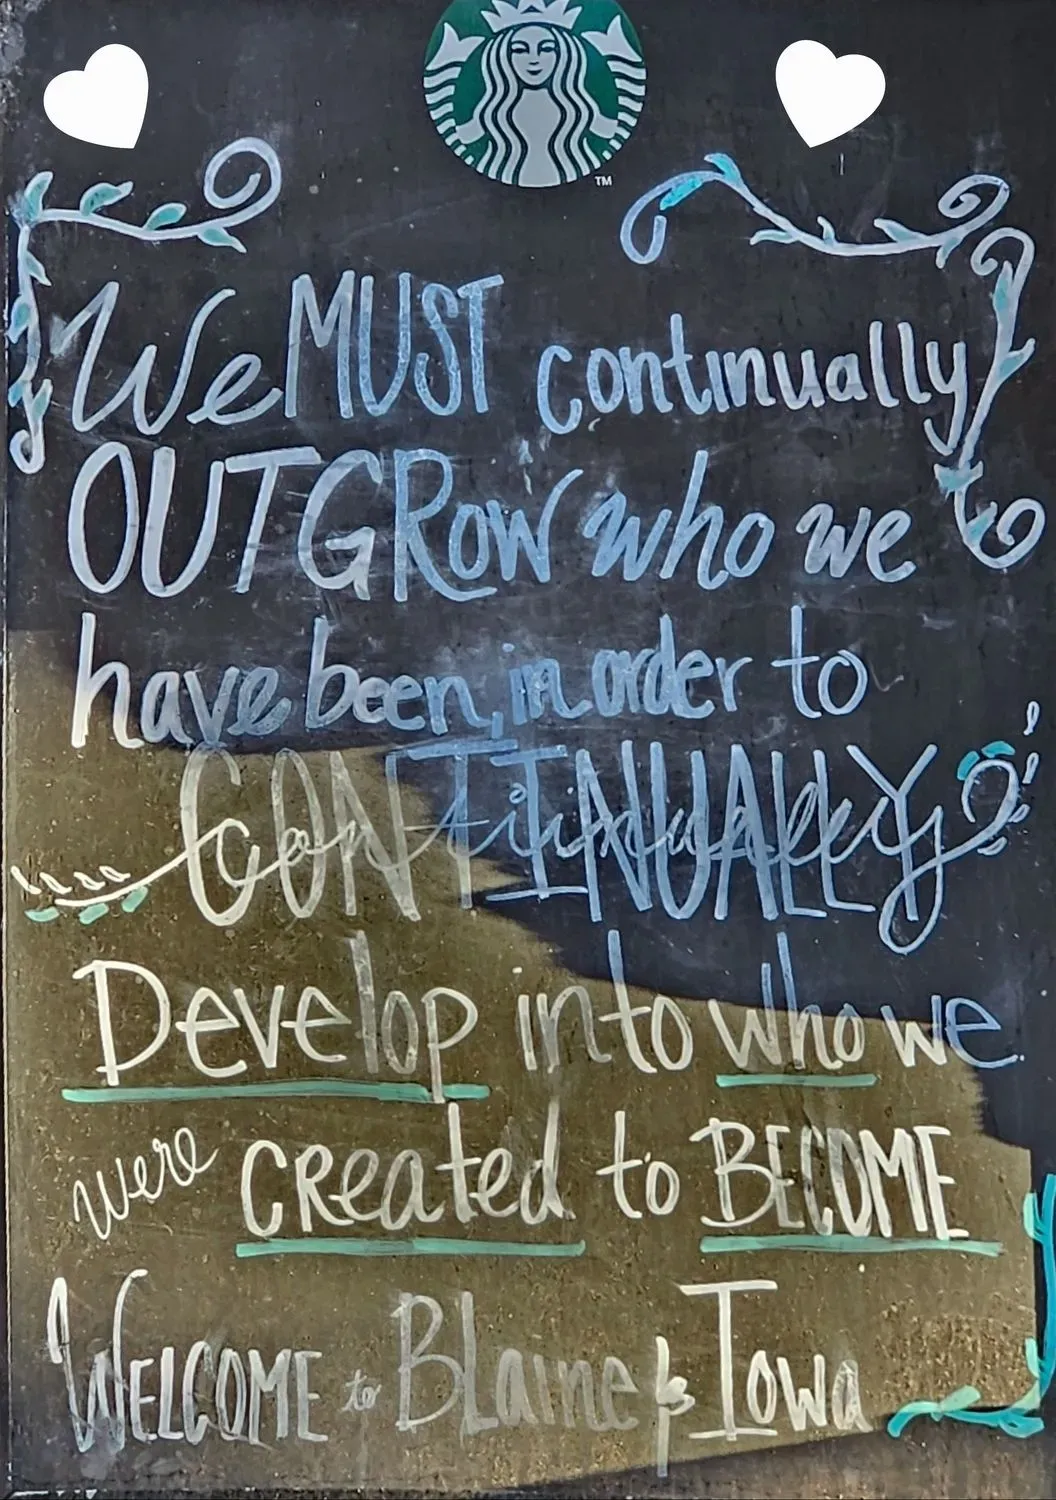 TM
We MUST continually
OUTGROW who we
have been, in order to
CONTINUALLY
Develop into who we
were created to BECOME
WELCOME to Blaine & Iowa